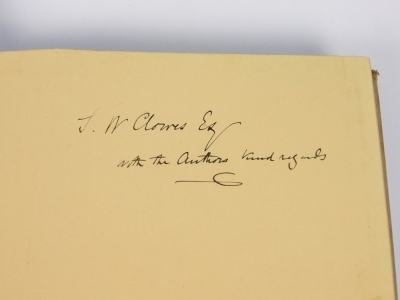 S. W Clowes Esq
with the Authors kind regards